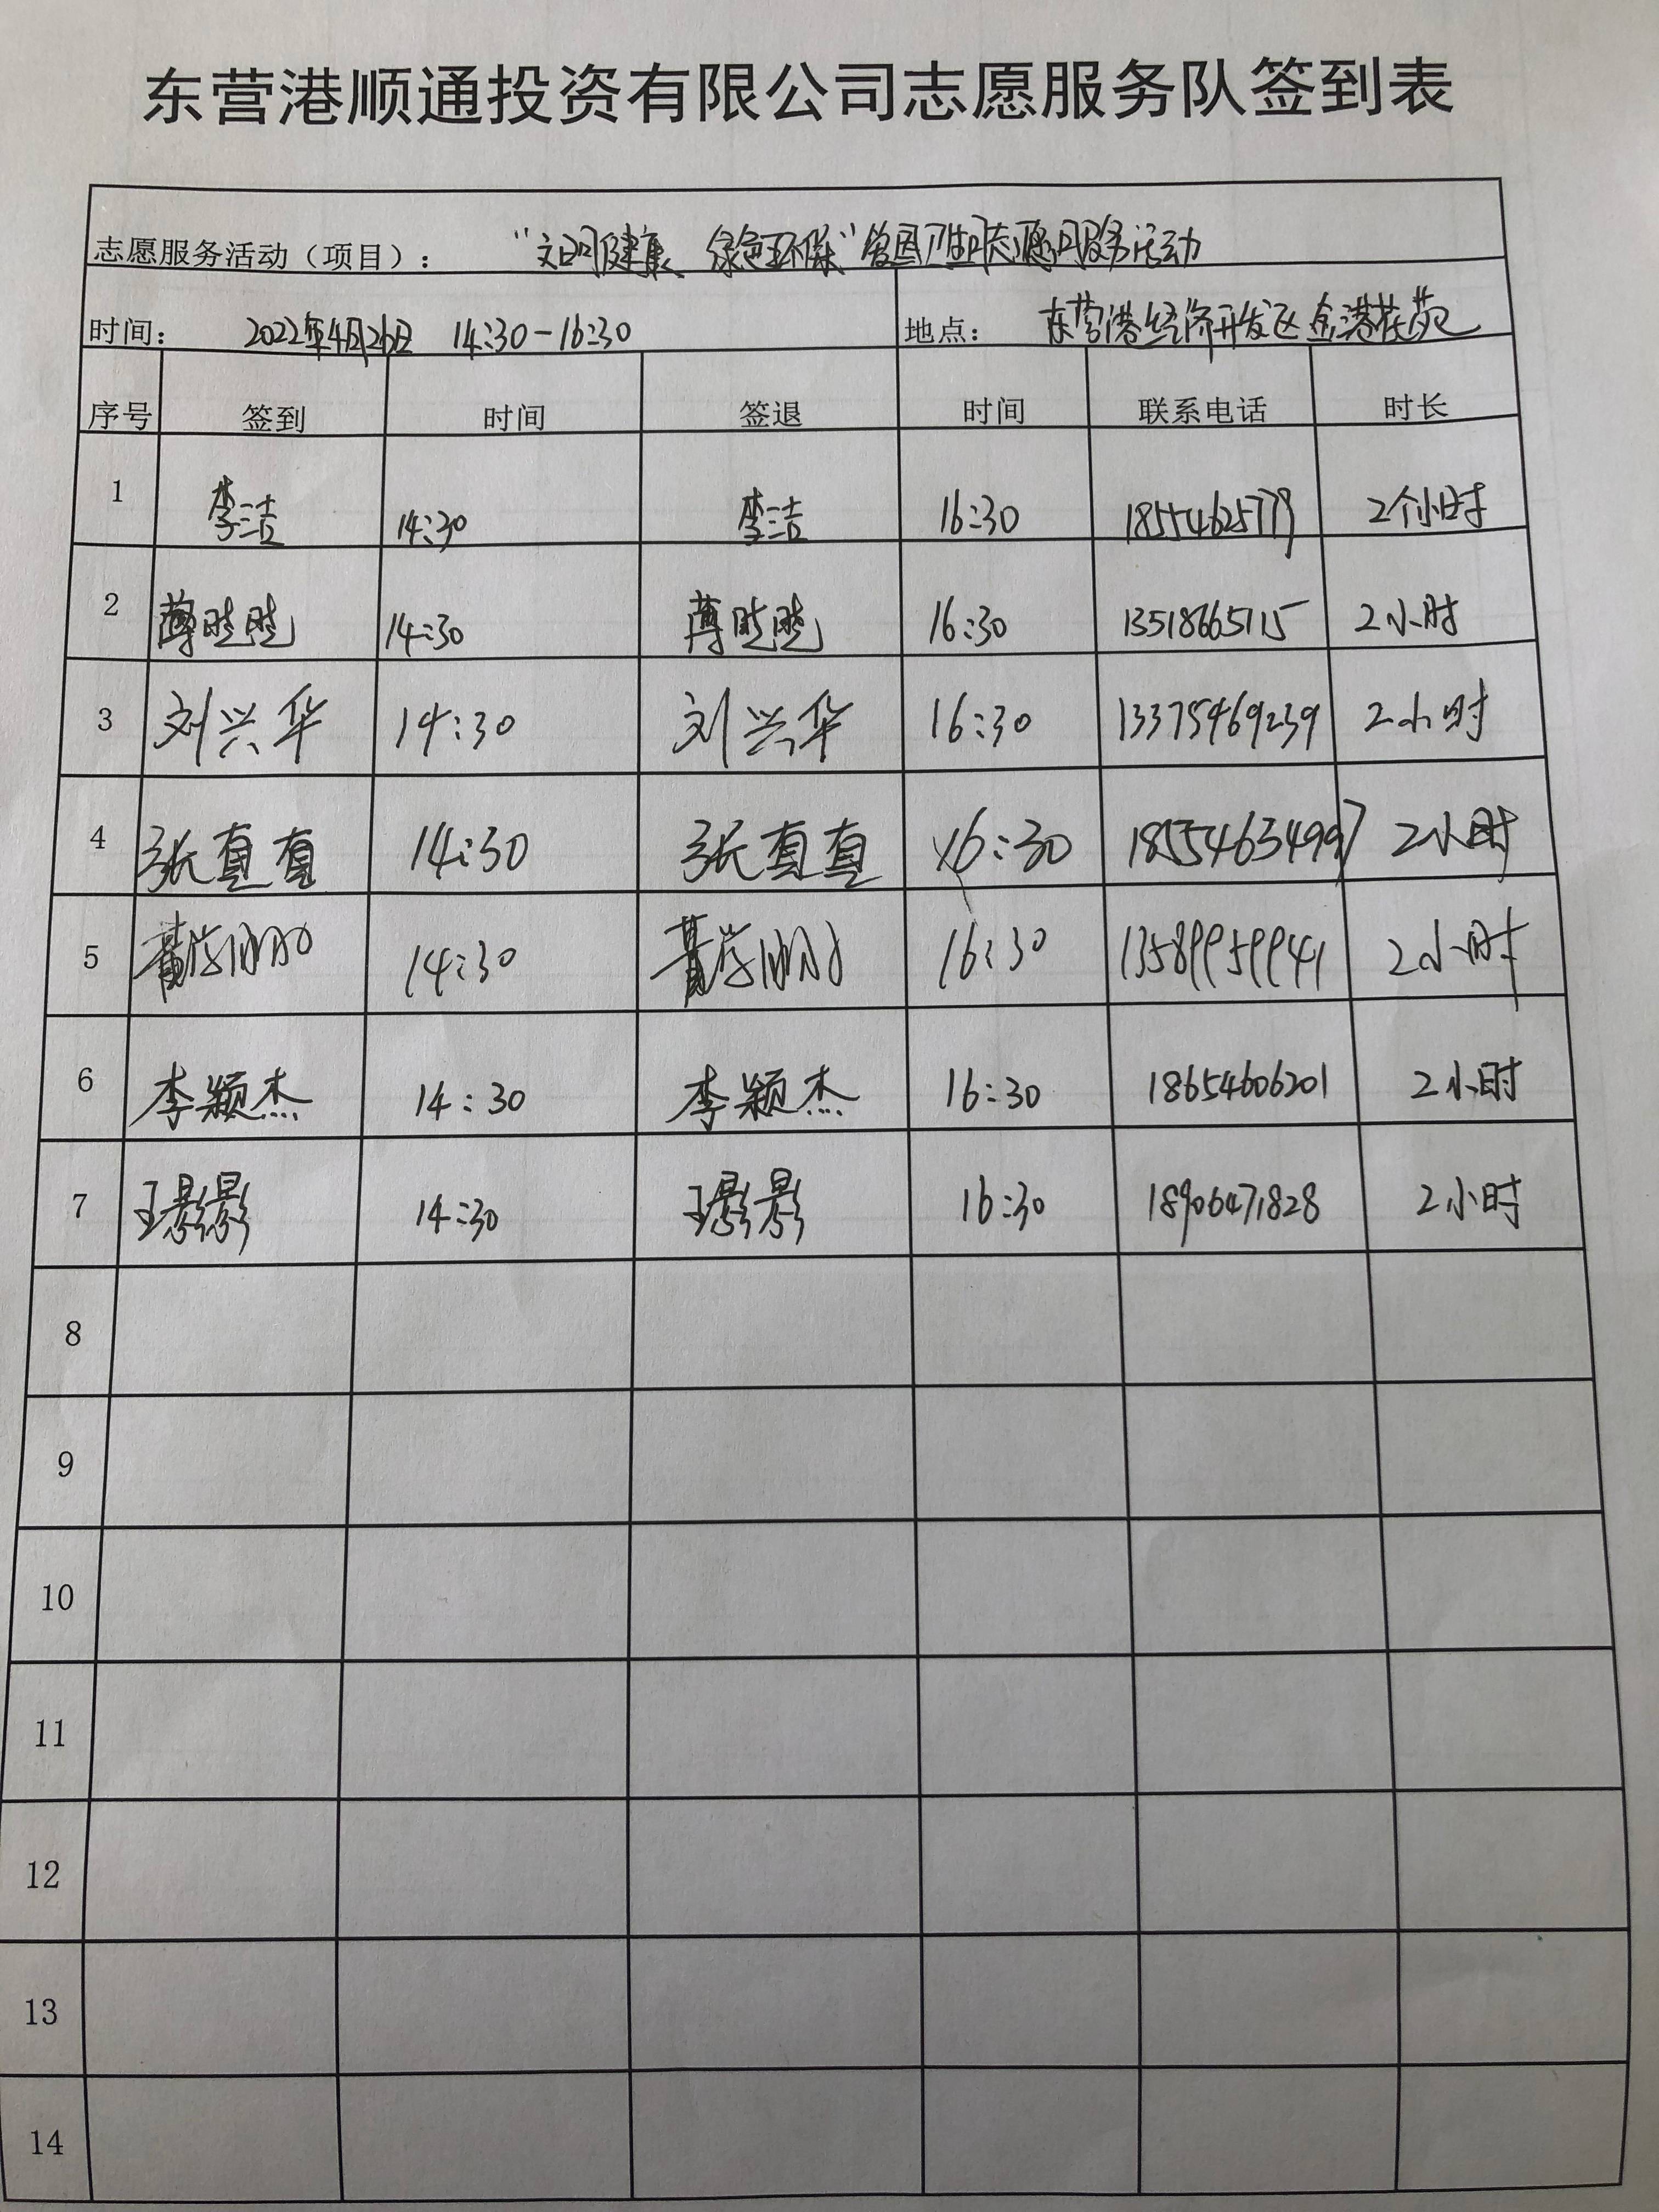 东营港顺通投资有限公司志愿服务队签到表
志愿服务活动（项目）： “文明健康 绿色环保”爱国卫生月志愿服务活动
时间： 2022年4月26日 14:30-16:30 地点： 东营港经济开发区金港花苑
序号 签到 时间 签退 时间 联系电话 时长
1 李洁 14:30 李洁 16:30 18554625779 2个小时
2 薄 14:30 薄 16:30 13518665115 2小时
3 刘兴华 14:30 刘兴华 16:30 13375469239 2小时
4 张真真 14:30 张真真 16:30 18554634997 2小时
5 14:30 16:30 13589959941 2小时
6 李颖杰 14:30 李颖杰 16:30 18654606201 2小时
7 王影影 14:30 王影影 16:30 18906471828 2小时
8
9
10
11
12
13
14